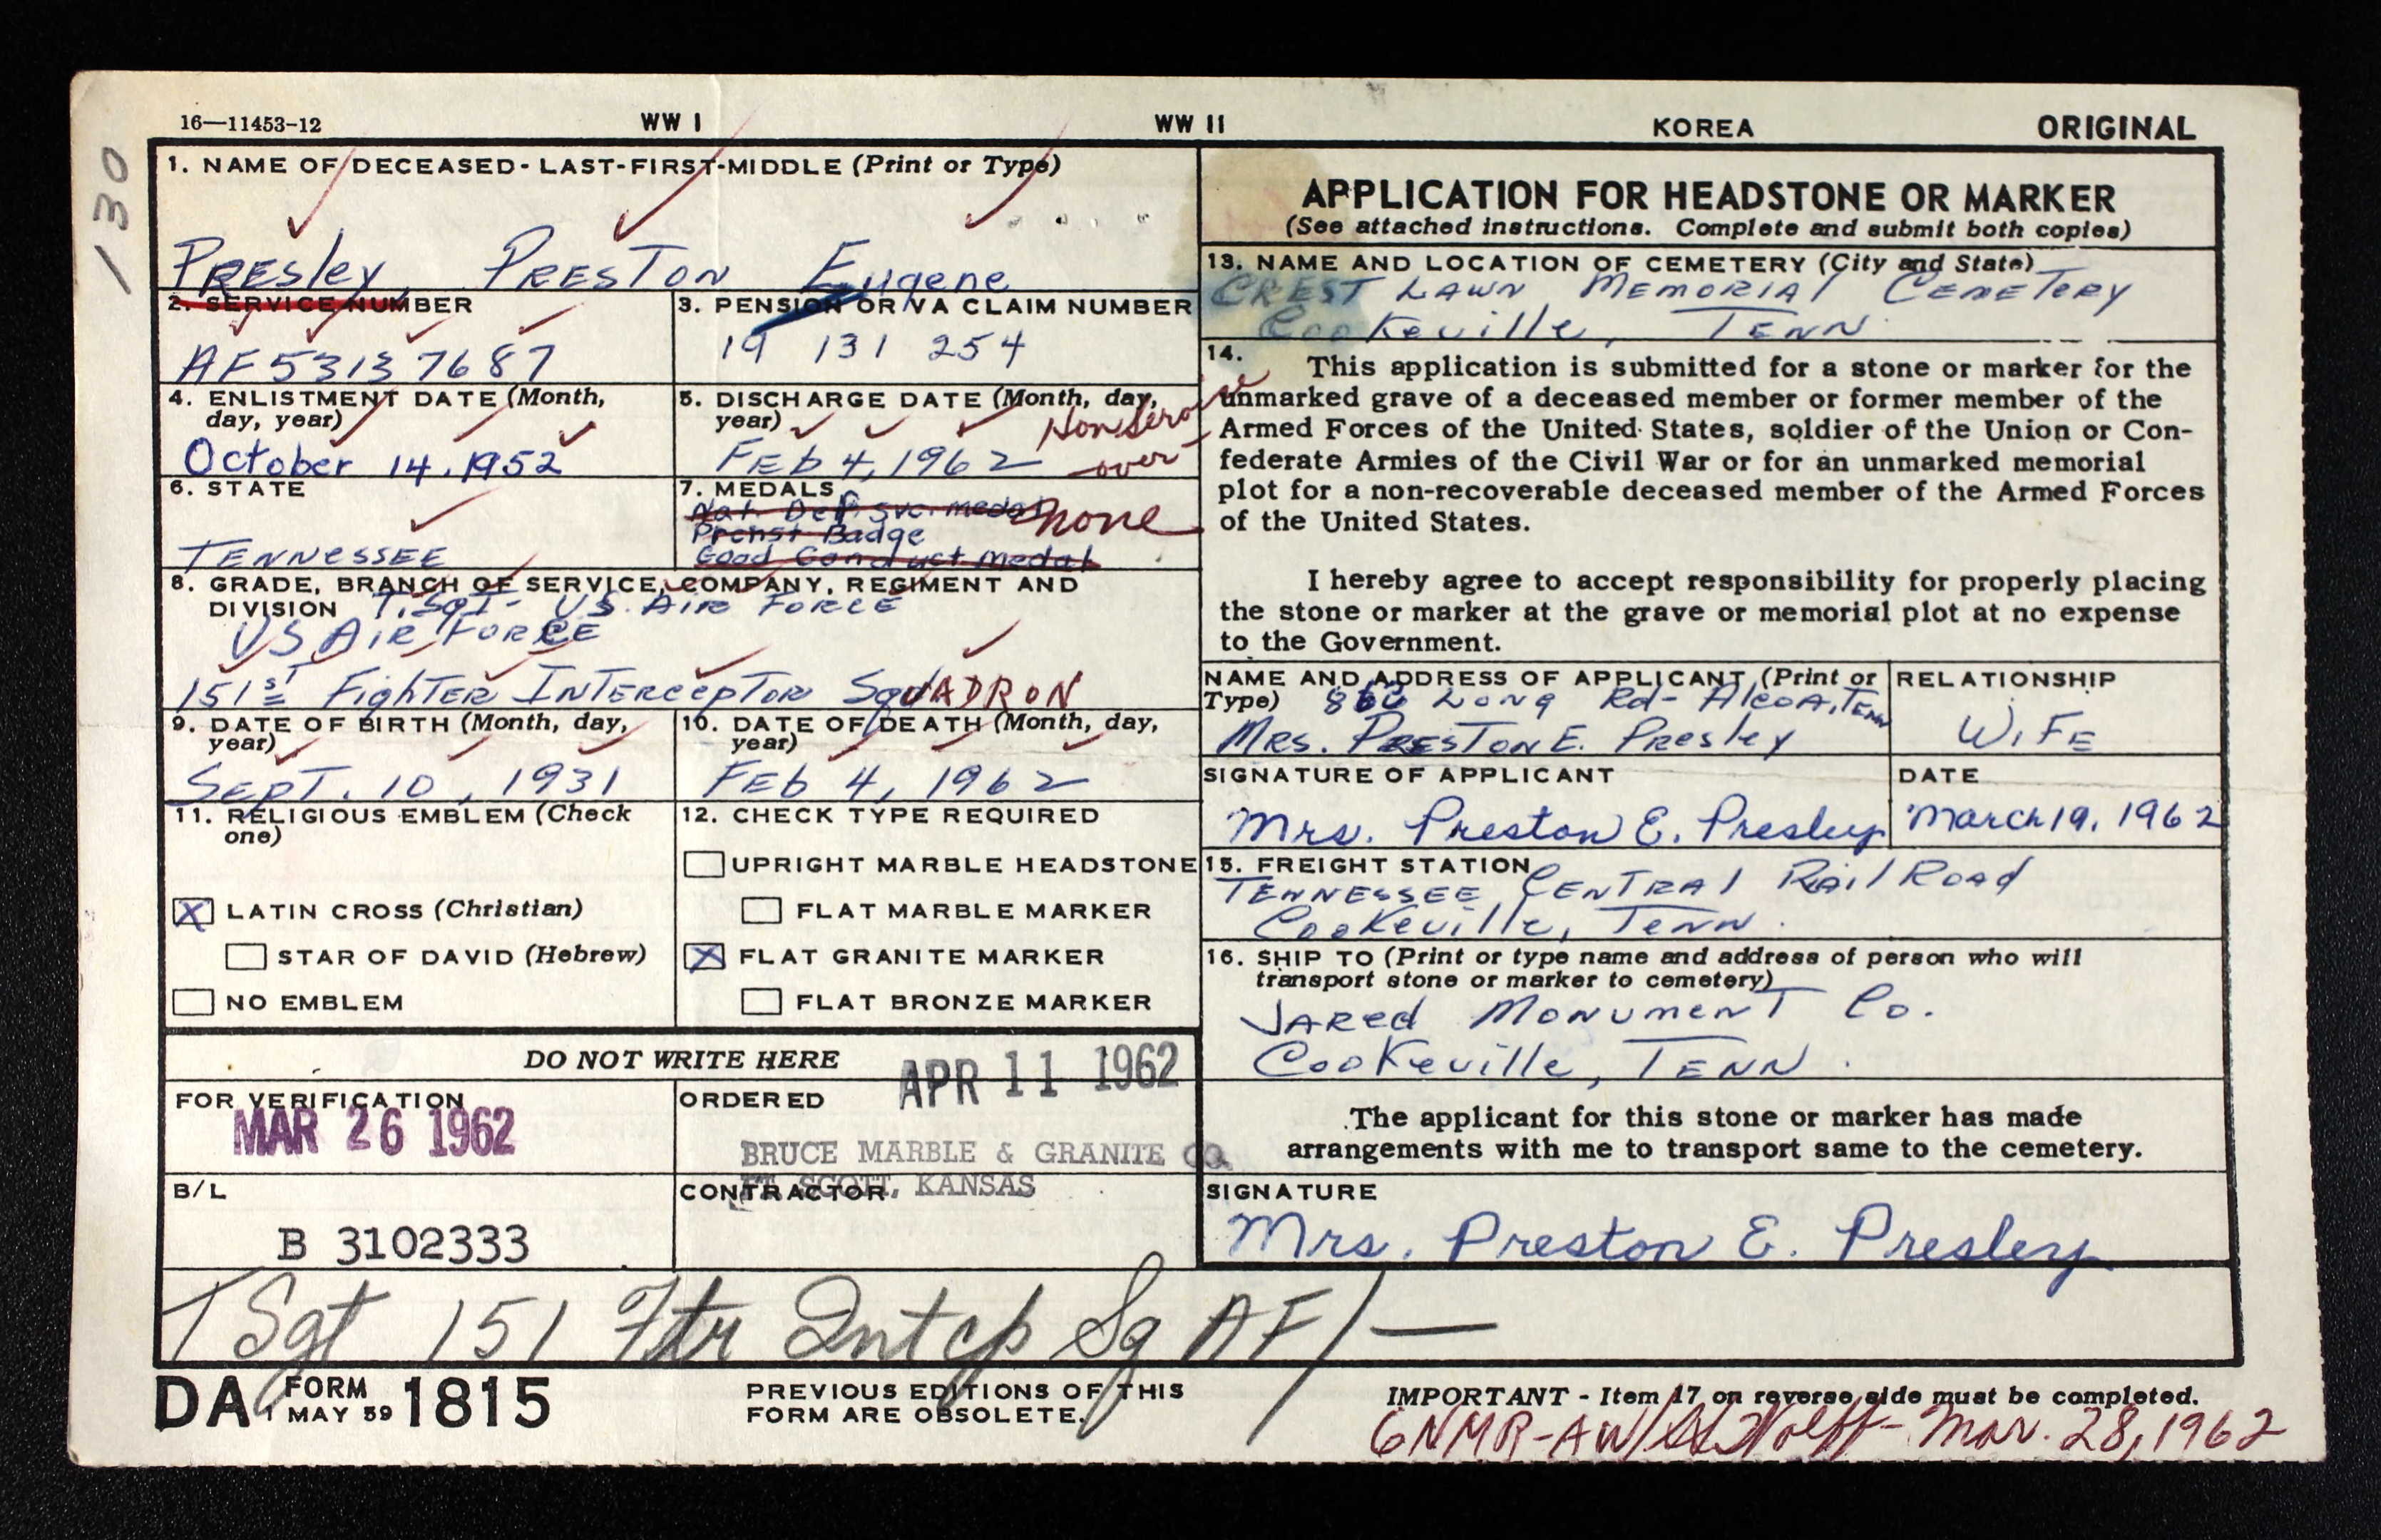 16—11453-12 WW I WW II KOREA ORIGINAL
130
1. NAME OF DECEASED - LAST-FIRST-MIDDLE (Print or Type)
PRESley, PRESTON Eugene
2. SERVICE NUMBER
AF 53137687
3. PENSION OR VA CLAIM NUMBER
19 131 254
4. ENLISTMENT DATE (Month,
day, year)
October 14, 1952
5. DISCHARGE DATE (Month, day,
year)
FEb 4, 1962
over
6. STATE
TENNESSEE
7. MEDALS
Nat. Def. Svc. medal none
Badge
Good Conduct Medal
8. GRADE, BRANCH OF SERVICE, COMPANY, REGIMENT AND
DIVISION T. SgT- US. AIR FORCE
US AIR FORCE
151ST FighTER INTERcepTOR SqUADRON
9. DATE OF BIRTH (Month, day,
year)
SEpT. 10, 1931
10. DATE OF DEATH (Month, day,
year)
FEb 4, 1962
11. RELIGIOUS EMBLEM (Check
one)
X LATIN CROSS (Christian)
STAR OF DAVID (Hebrew)
NO EMBLEM
12. CHECK TYPE REQUIRED
UPRIGHT MARBLE HEADSTONE
FLAT MARBLE MARKER
X FLAT GRANITE MARKER
FLAT BRONZE MARKER
DO NOT WRITE HERE
FOR VERIFICATION
MAR 26 1962
ORDERED
APR 11 1962
BRUCE MARBLE & GRANITE CO.
FT. SCOTT, KANSAS
B/L
B 3102333
CONTRACTOR
APPLICATION FOR HEADSTONE OR MARKER
(See attached instructions. Complete and submit both copies)
13. NAME AND LOCATION OF CEMETERY (City and State)
CREST LAWN MEMORIAl CEMETERY
CooKeville, TENN
14.
This application is submitted for a stone or marker for the
unmarked grave of a deceased member or former member of the
Armed Forces of the United States, soldier of the Union or Con-
federate Armies of the Civil War or for an unmarked memorial
plot for a non-recoverable deceased member of the Armed Forces
of the United States.
I hereby agree to accept responsibility for properly placing
the stone or marker at the grave or memorial plot at no expense
to the Government.
NAME AND ADDRESS OF APPLICANT (Print or
Type) Long Rd- AlcoA, TENN
MRS. PRESTON E. Presley
RELATIONSHIP
WIFE
SIGNATURE OF APPLICANT
Mrs. Preston E. Presley
DATE
March 19, 1962
15. FREIGHT STATION
TENNESSEE CENTRAl RAilRoad
CooKeville, Tenn.
16. SHIP TO (Print or type name and address of person who will
transport stone or marker to cemetery)
JARed MONUMENT Co.
CooKeville, TENN.
The applicant for this stone or marker has made
arrangements with me to transport same to the cemetery.
SIGNATURE
Mrs. Preston E. Presley
T Sgt 151 Ftr Intcp Sq AF/—
DA FORM 1815
1 MAY 59
PREVIOUS EDITIONS OF THIS
FORM ARE OBSOLETE.
IMPORTANT - Item 17 on reverse side must be completed.
Mar. 28, 1962